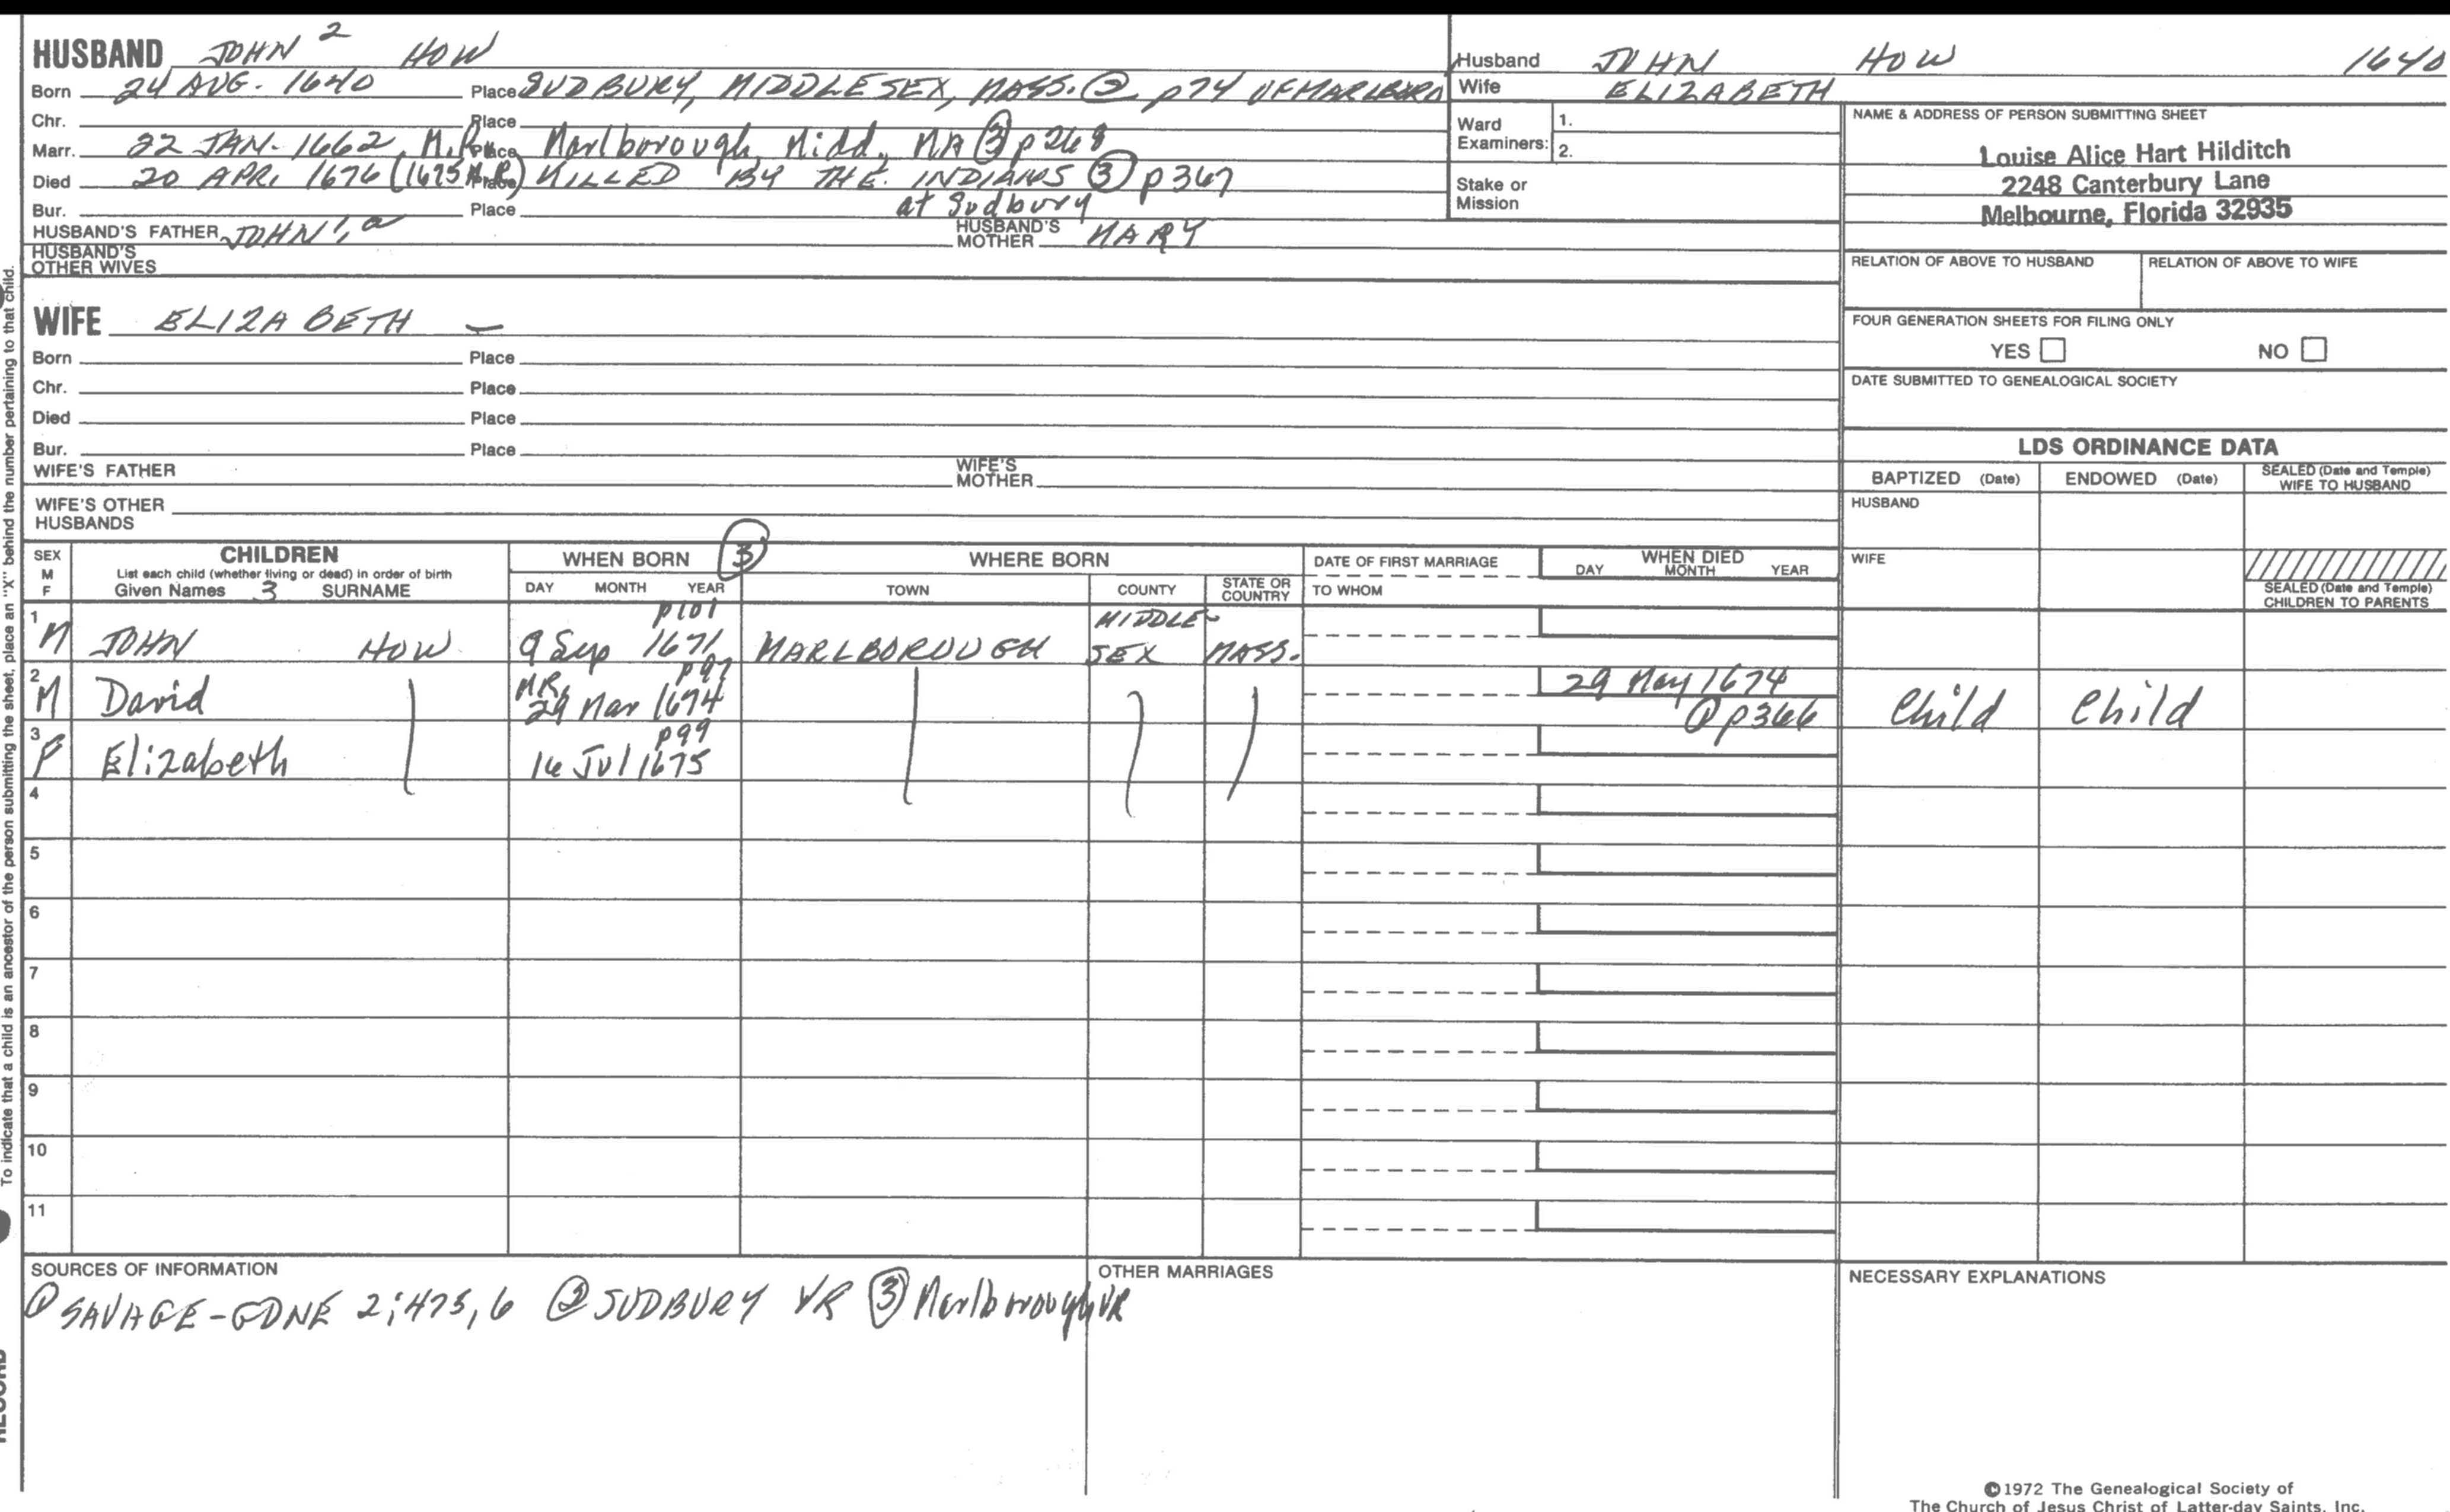 HUSBAND JOHN 2 HOW
Born 24 AUG. 1640 Place SUDBURY, MIDDLESEX, MASS. ② p74 OF MARLBORO
Chr. Place
Marr. 22 JAN. 1662, M.R. Place Marlborough, Midd., MA ③ p268
Died 20 APR. 1676 (1675 M.R.) Place KILLED BY THE INDIANS ③ p367
at Sudbury
Bur. Place
HUSBAND'S FATHER JOHN 1, a HUSBAND'S MOTHER MARY
HUSBAND'S OTHER WIVES
WIFE ELIZABETH —
Born Place
Chr. Place
Died Place
Bur. Place
WIFE'S FATHER WIFE'S MOTHER
WIFE'S OTHER HUSBANDS
Husband JOHN HOW 1640
Wife ELIZABETH
Ward Examiners: 1.
2.
Stake or Mission
NAME & ADDRESS OF PERSON SUBMITTING SHEET
Louise Alice Hart Hilditch
2248 Canterbury Lane
Melbourne, Florida 32935
RELATION OF ABOVE TO HUSBAND RELATION OF ABOVE TO WIFE
FOUR GENERATION SHEETS FOR FILING ONLY
YES NO
DATE SUBMITTED TO GENEALOGICAL SOCIETY
LDS ORDINANCE DATA
BAPTIZED (Date) ENDOWED (Date) SEALED (Date and Temple) WIFE TO HUSBAND
HUSBAND
WIFE
SEALED (Date and Temple) CHILDREN TO PARENTS
SEX M F
CHILDREN
List each child (whether living or dead) in order of birth
Given Names 3 SURNAME
WHEN BORN ③
DAY MONTH YEAR
WHERE BORN
TOWN COUNTY STATE OR COUNTRY
DATE OF FIRST MARRIAGE
TO WHOM
WHEN DIED
DAY MONTH YEAR
p101 MIDDLE-
1 M JOHN HOW 9 Sep 1671 MARLBOROUGH SEX MASS.
M.R. p97 29 May 1674
2 M David 29 Mar 1674 p366 Child Child
p99
3 F Elizabeth 16 Jul 1675
4
5
6
7
8
9
10
11
SOURCES OF INFORMATION
① SAVAGE-GDNE 2:475,6 ② SUDBURY VR ③ Marlborough VR
OTHER MARRIAGES
NECESSARY EXPLANATIONS
©1972 The Genealogical Society of
The Church of Jesus Christ of Latter-day Saints, Inc.
To indicate that a child is an ancestor of the person submitting the sheet, place an "X" behind the number pertaining to that child.
RECORD